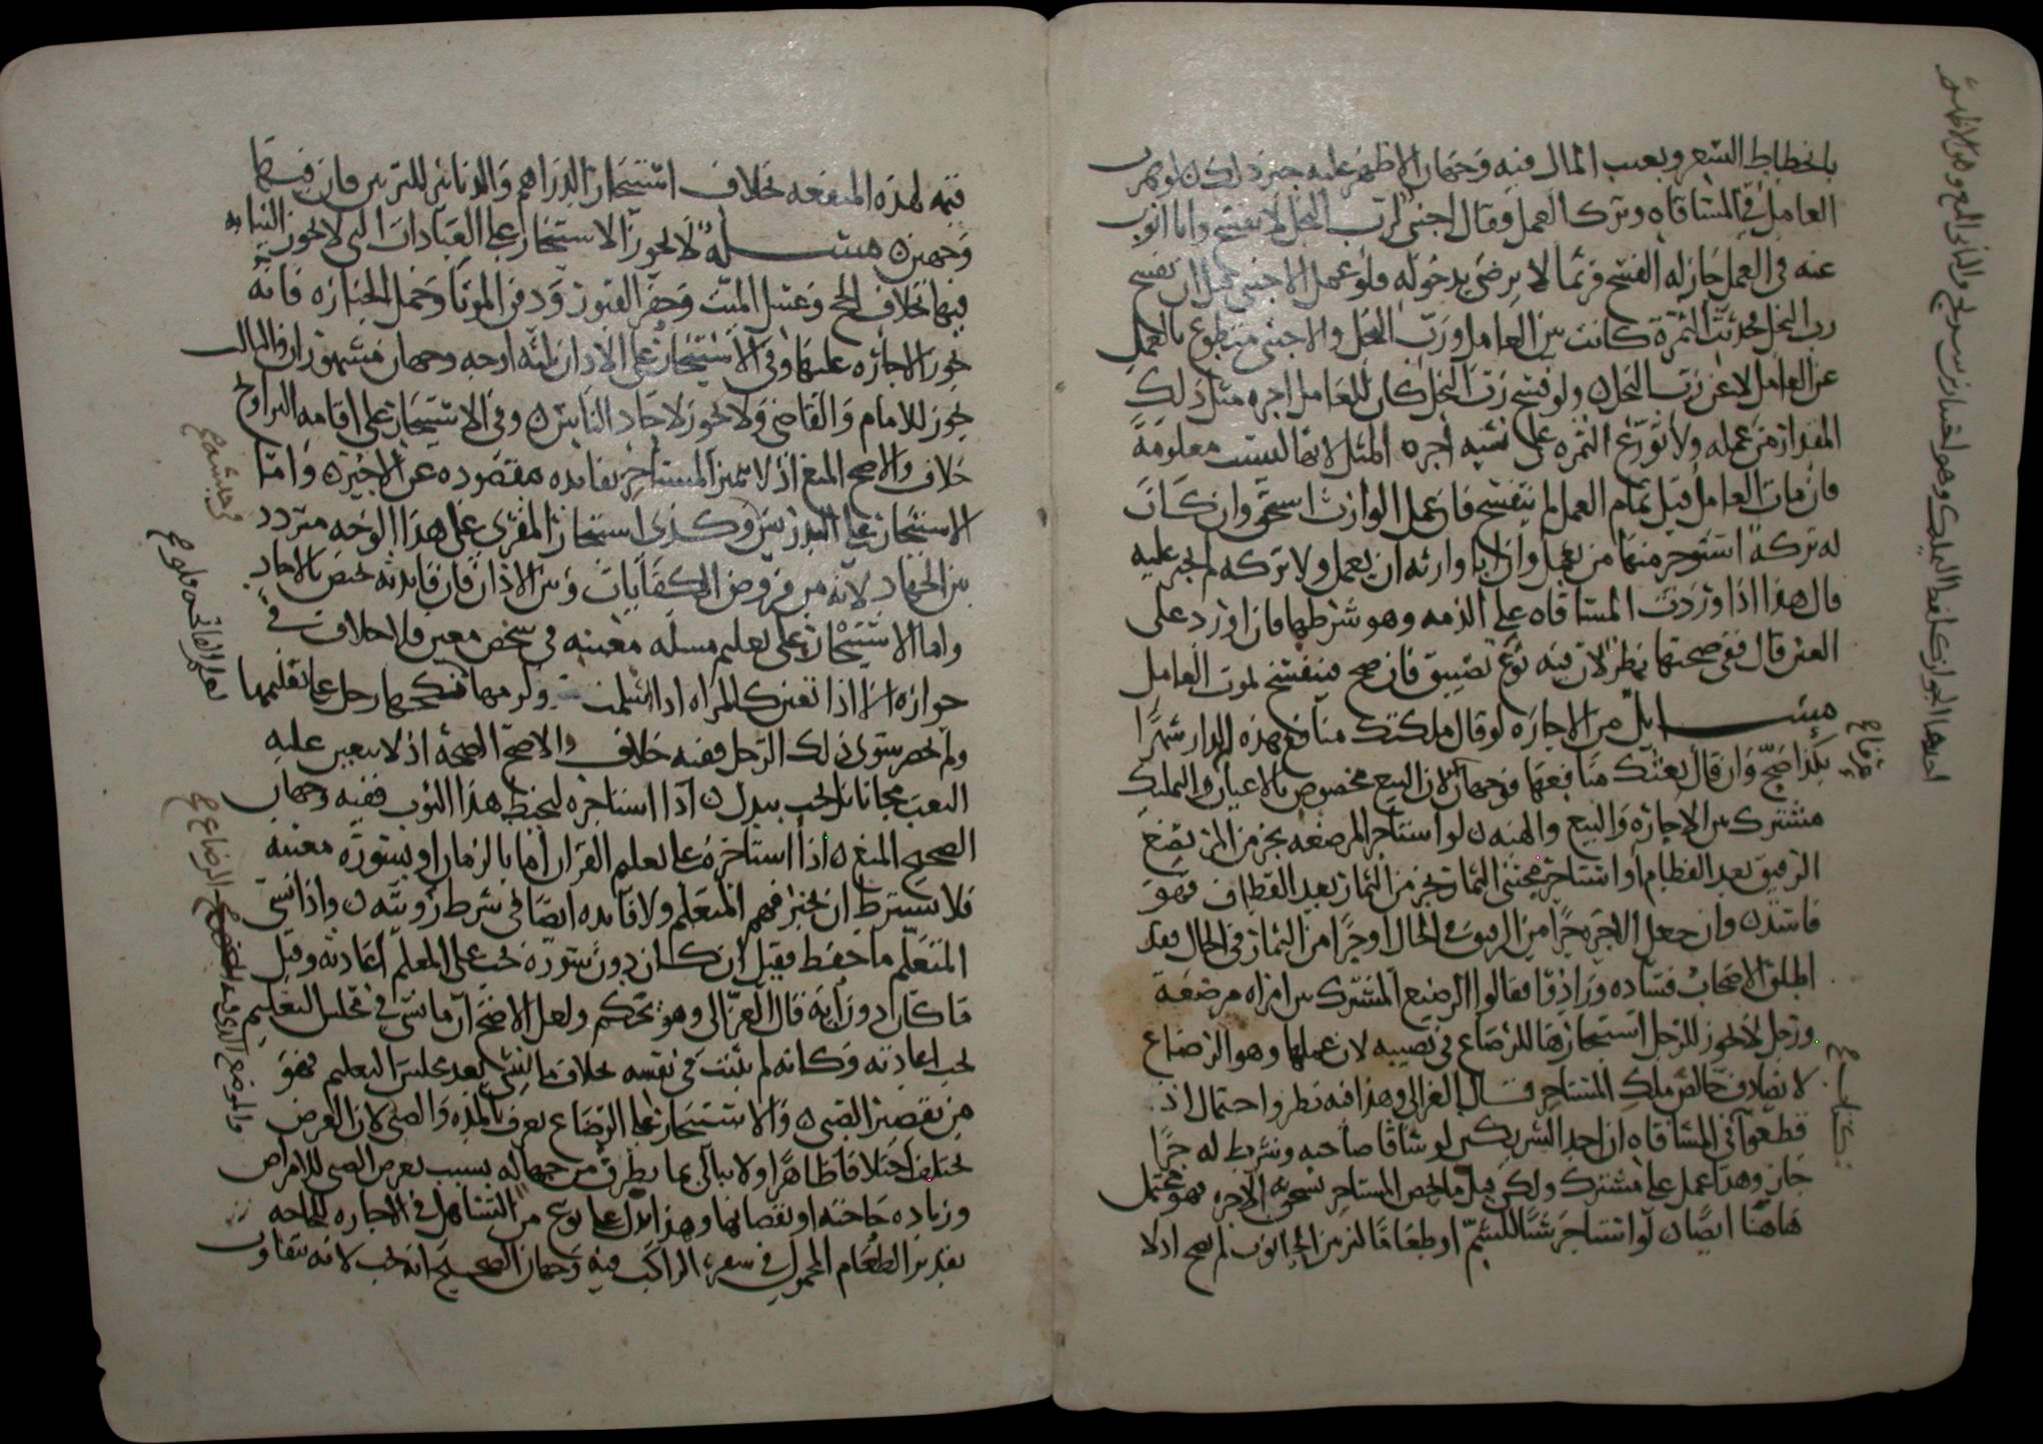 بانحطاط السعر وبعيب المال فيه وجهان الاظهر عليه جبر ذلك ن لو هرب
العامل في المساقاه وترك العمل وقال اجنبي لرب النخل لا تفسخ وانا انوب
عنه في العمل جاز له الفسخ فربما لا يرضى بدخوله فلو عمل الاجنبي قبل ان يفسخ
رب النخل فحدثت الثمرة كانت بين العامل ورب النخل والاجنبي متطوع بالعمل
عن العامل لا عن رب النخل ن ولو فسخ رب النخل كان للعامل اجره مثل ذلك
المقدار من عمله ولا توزع الثمره على نسبه اجره المثل لانها ليست معلومة
فان مات العامل قبل تمام العمل لم تنفسخ فان عمل الوارث استحق وان كان
له تركة استوجر منها من يعمل وان ابا وارثه ان يعمل ولا تركه لم يجبر عليه
قال هذا اذا وردت المساقاه على الذمه وهو شرطها فان اورد على
العين قال ففي صحتها نظر لان فيه نوع تضييق فان صح فينفسخ بموت العامل
مسايل من الاجاره لو قال ملكتك منافع هذه الدار شهرا
بكذا صح وان قال بعتك منافعها فوجهان لان البيع مخصوص بالاعيان والتمليك
مشترك بين الاجاره والبيع والهبه ن لو استاجر المرضعه بجزء من المرتضع
الرقيق بعد الفطام او استاجر مجتنى الثمار بجزء من الثمار بعد القطاف فهو
فاسد ن وان جعل الاجره جزا من الرقيق في الحال او جزا من الثمار في الحال فقد
اطلق الاصحاب فساده وزادوا فقالوا الرضيع المشترك بين امراه مرضعة
ورجل لا يجوز للرجل استيجارها للرضاع في نصيبه لان عملها وهو الرضاع
لا يصادف خالص ملك المستاجر قال الغزالي وهذا فيه نظر واحتمال اذ
قطعوا في المساقاه ان احد الشريكين لو ساقا صاحبه وشرط له جزا
جاز وهذا عمل على مشترك ولكن قبل ما يخص المستاجر يستحق به الاجره فهو محتمل
هاهنا ايضا ن لو استاجر شيا للشم او طعاما لتزيين الحانوت لم يصح اذ لا
فيه لهذه المنفعه بخلاف استيجار الدراهم والدنانير للتزيين فان فيها
وجهين مسله لا يجوز الاستيجار على العبادات التي لا يجوز النيابه
فيها بخلاف الحج وغسل الميت وحفر القبور ودفن الموتا وحمل الجنازه فانه
يجوز الاجاره عليها وفي الاستيجار على الاذان ثلثه اوجه وجهان مشهوران والثالث
يجوز للامام والقاضي ولا يجوز لاحاد الناس ن وفي الاستيجار على اقامه التراويح
خلاف والاصح المنع اذ لا تميز المستاجر بفايده مقصوده عن الاجير ن واما
الاستيجار على التدريس وكذى استيجار المقرى على هذا الوجه متردد
بين الجهاد لانه من فروض الكفايات وبين الاذان فان فايدته تختص بالاحاد
واما الاستيجار على تعليم مسله معينه في شخص معين فلا خلاف في
جوازه الا اذا تعين كالمراه اذا اسلمت ولزمها فنكحها رجل على تعليمها
ولم يحضر سوى ذلك الرجل ففيه خلاف والاصح الصحة اذ لا يتعين عليه
التعب مجانا بل يجب ببدل ن اذا استاجره ليخيط هذا الثوب ففيه وجهان
الصحيح المنع ن اذا استاجره على تعليم القران اما بالزمان او بسورة معينه
فلا يشترط ان يختبر فهم المتعلم ولا فايده ايضا في شرط رويته ن واذا نسي
المتعلم ما حفظ فقيل ان كان دون سورة يجب على المعلم اعادته وقيل
ما كان دون اية قال الغزالي وهو تحكم ولعل الاصح ان ما نسي في تخلل التعليم
يجب اعادته وكانه لم يثبت في نفسه بخلاف ما ينسى بعد مجلس التعليم فهو
من تقصير الصبي ن والاستيجار على الرضاع يعرف بالمدة والصبي لان الغرض
يختلف اختلافا ظاهرا ولا نبالي بما يطرق من جهاله بسبب تعرض الصبي للامراض
وزياده حاجته او نقصانها وهذا يدل على نوع من التساهل في الاجاره للحاجه
تقدير الطعام المحمول في سفره الراكب فيه وجهان الصحيح انه يجب لانه يتفاوت